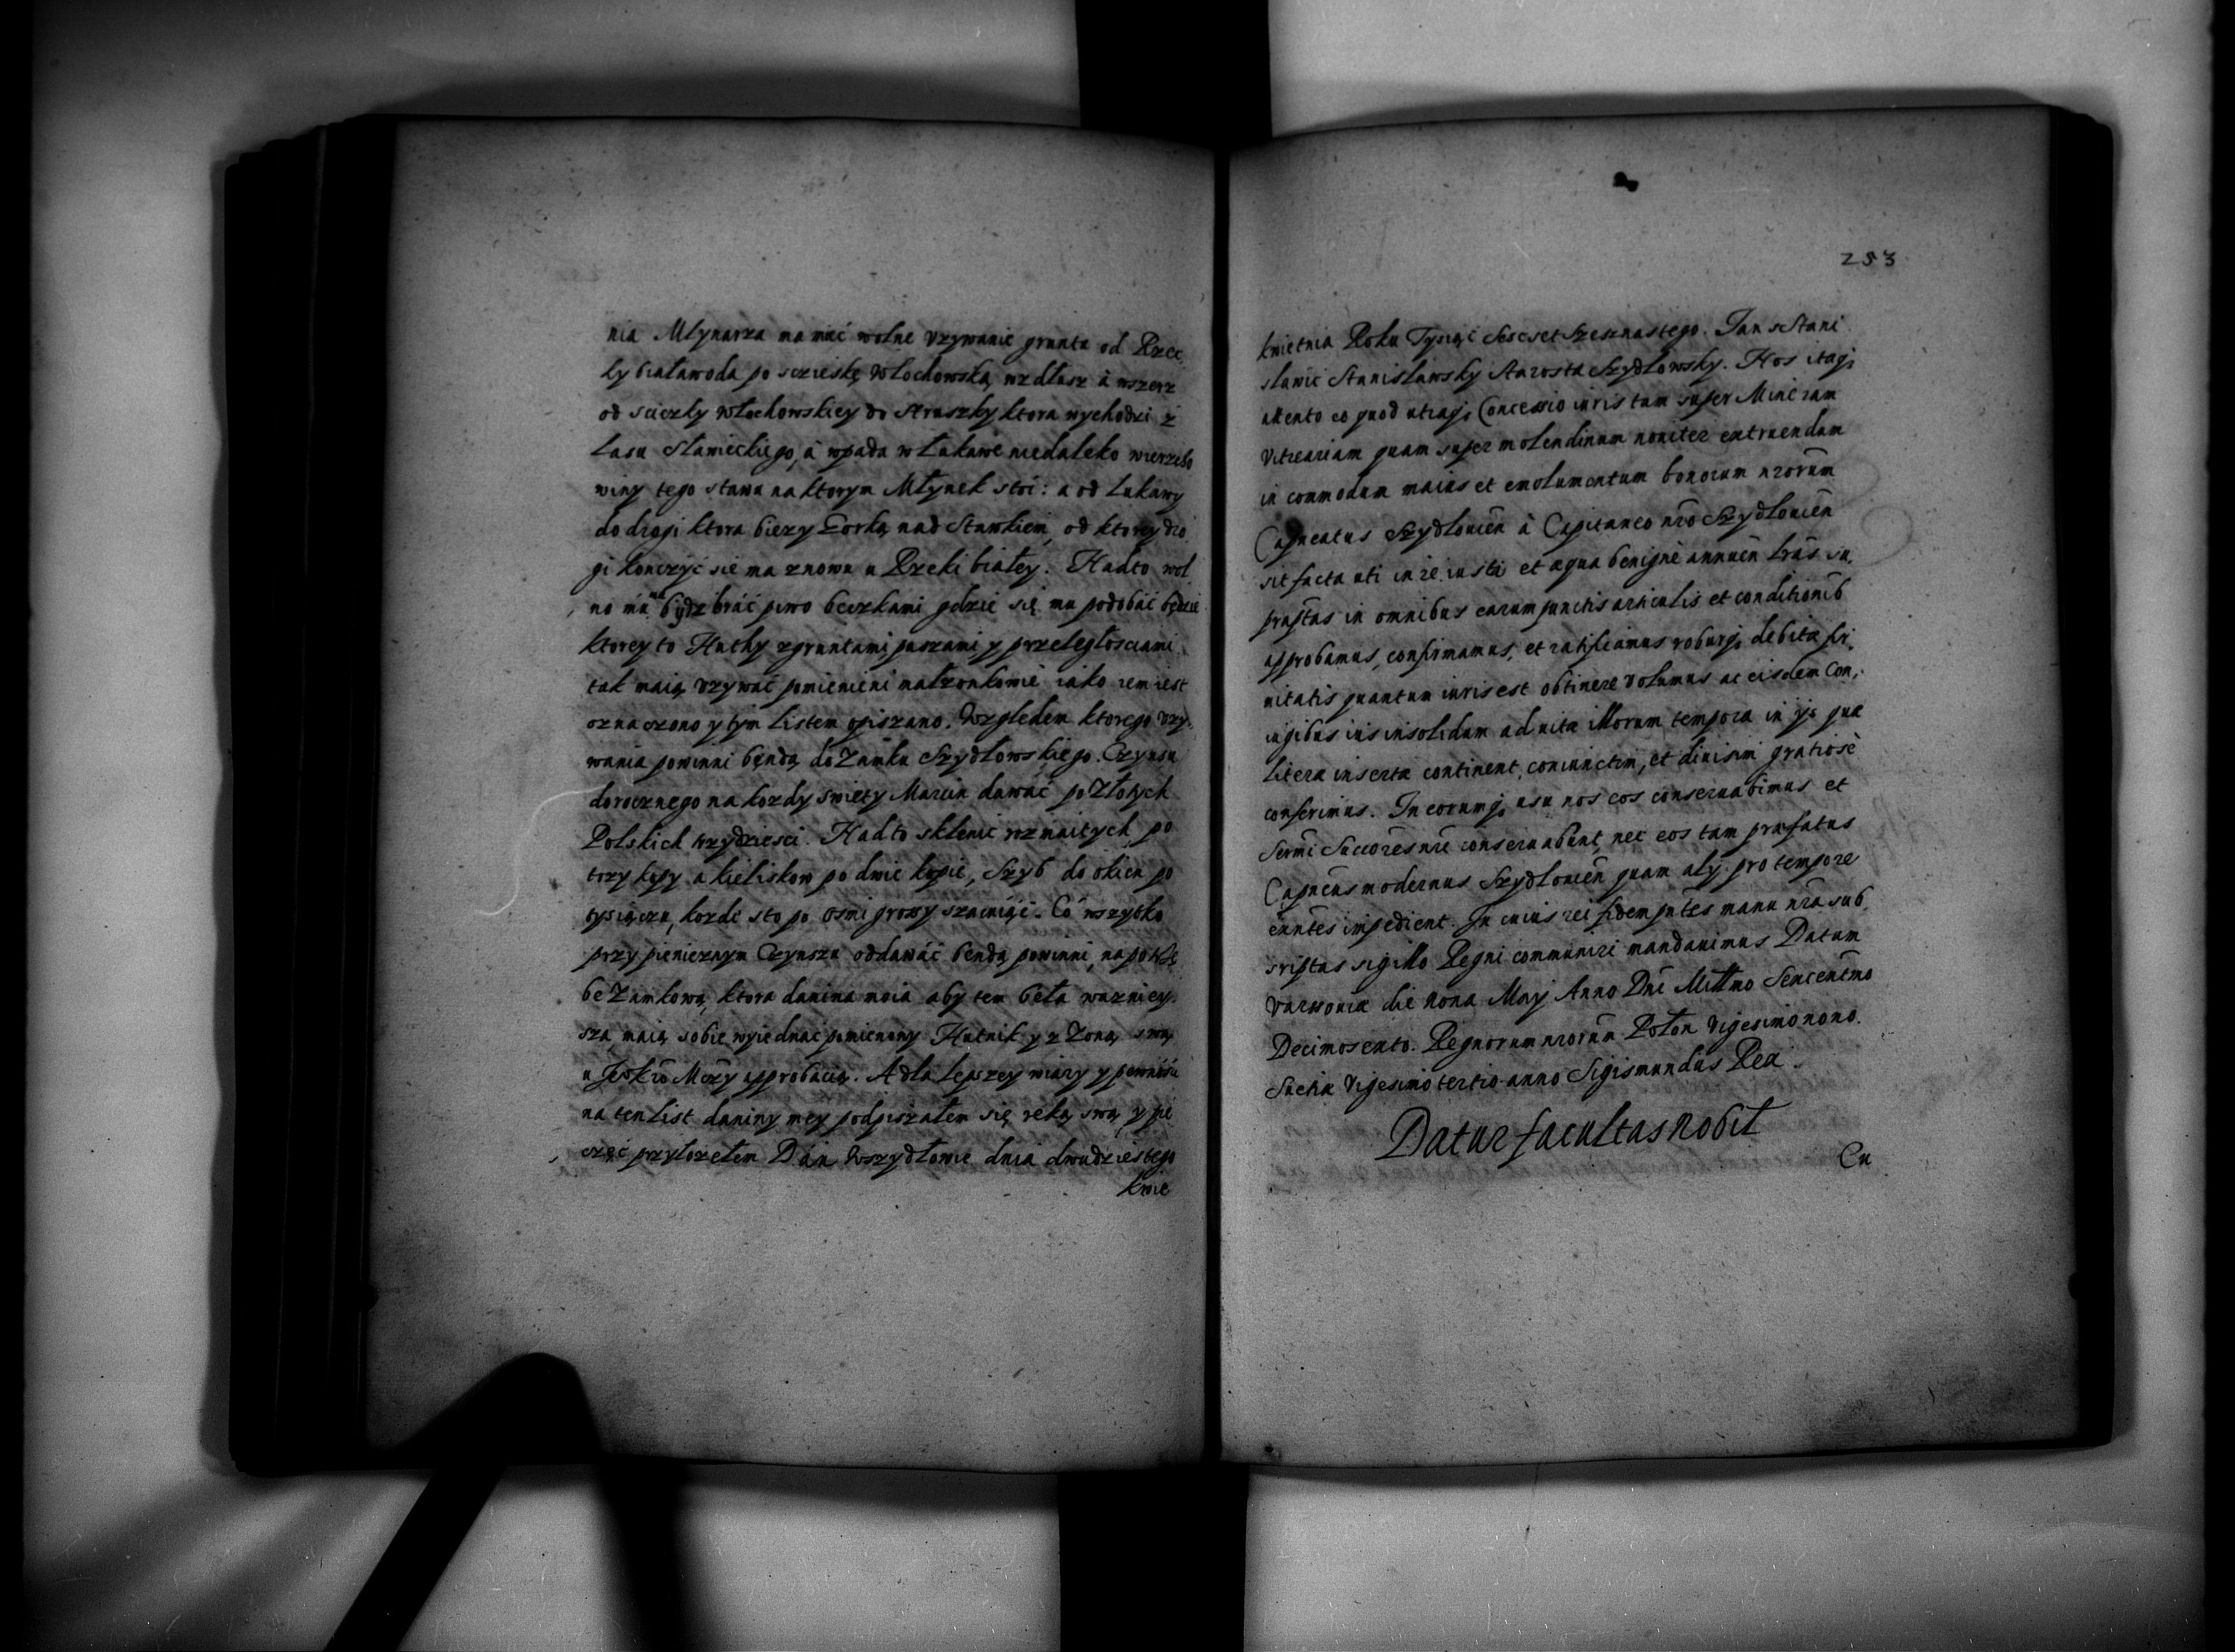 nia Młynarza ma mieć wolne vzywanie gruntu od Rzec
ky białawoda po sczieskę Włochowską wzdłusz à wszerz
od sciezky Włochowskiey do Struszky ktora wychodzi z
Lasu Sławieckiego, à wpada w Łukawe niedaleko wierzcho
winy tego stawu na ktorym Młynek stoi: a od Lukawy
do drogi ktora biezy Gorką nad Stawkiem, od ktorey dro
gi kończyć sie ma znowu u Rzeki białey. Nadto wol
no má bydz bráć piwo beczkami gdzie się mu podobać będzie
ktorey to Huthy zgruntami puszami y przeległosciami
tak maią vzywać pomienieni małzonkowie iako iem iest
oznaczono y tym Listem opiszano. Względem ktorego vzy,
wania powinni będą do Zamku Szydłowskiego Czynsu
dorocznego na kozdy swięty Marcin dawáć po Złotych
Polskich trzydziesci. Nadto sklenic rozmaitych po
trzy kopy a kieliskow po dwie kopie, Szyb do okien po
tysiączu, kozde sto po osmi groszy szacuiąc. Co wszytko
przy pienieznym Czynszu oddawáć bendą powinni, na potrze
be Zamkową, ktora danina moia aby tem beła wazniey
sza, maią sobie wyiednac pomieniony Hutnik y z Zoną swą
u Je° Kró Mczy approbacią. A dla lepszey wiary y pewnosci
na ten List daniny mey podpiszałem się reką swą y pie
częć przyłozełem Dan w Szydłowie dnia dwudziestego
kwie
253
kwietnia Roku Tysiąc Sescset Szesznastego. Jan s Stani
sławic Stanisławsky Starosta Szydłowsky. Nos itaq;
attento eo quod utraq; Concessio iuris tam super Mineram
Vitreariam quam super molendinum noviter extruendum
in commodum maius et emolumentum bonorum nrorum
Capneatus Szydlouien à Capitaneo nro Szydlouien
sit facta uti in re iusta et æqua benignè annuen Lras su,
praptas in omnibus earum punctis articulis et conditionib
approbamus, confirmamus, et ratificamus roburq; debitæ fir,
mitatis quantum iuris est obtinere volumus ac eisdem Con,
iugibus ius insolidum ad vitæ illorum tempora in ys quæ
Literæ insertæ continent, coniunctim, et divisim gratiosè
conferimus. In eorumq; usu nos eos conseruabimus et
Sermi Succores nri conseruabunt, nec eos tam præfatus
Capneus modernus Szydlouien quam aly pro tempore
exntes impedient. In cuius rei fidem pntes manu nra sub
scriptas sigillo Regni communiri mandauimus Datum
Varsouiæ die nona May Anno Dni Millmo Sexcentmo
Decimosexto. Regnorum nrorum Polon Vigesimo nono.
Sueciæ Vigesimo tertio anno Sigismundus Rex.
Datur facultas Nobil
Cu